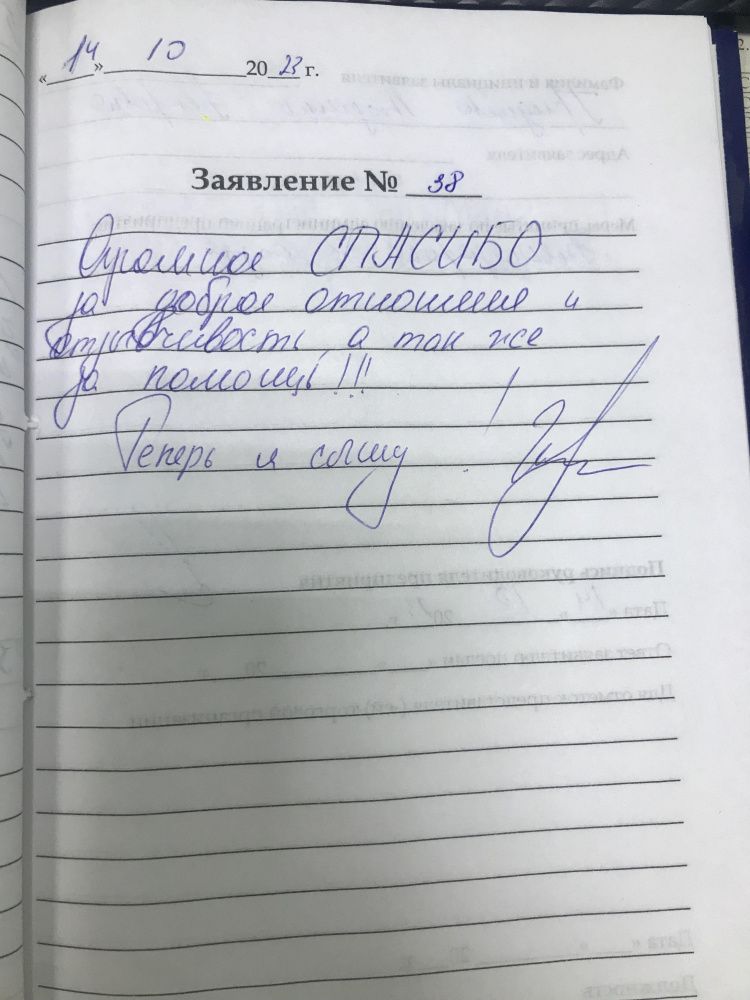 «14» 10 2023 г.
Заявление № 38
Огромное СПАСИБО
за доброе отношение и
отзывчивость, а так же
за помощь!!!
Теперь я слышу !